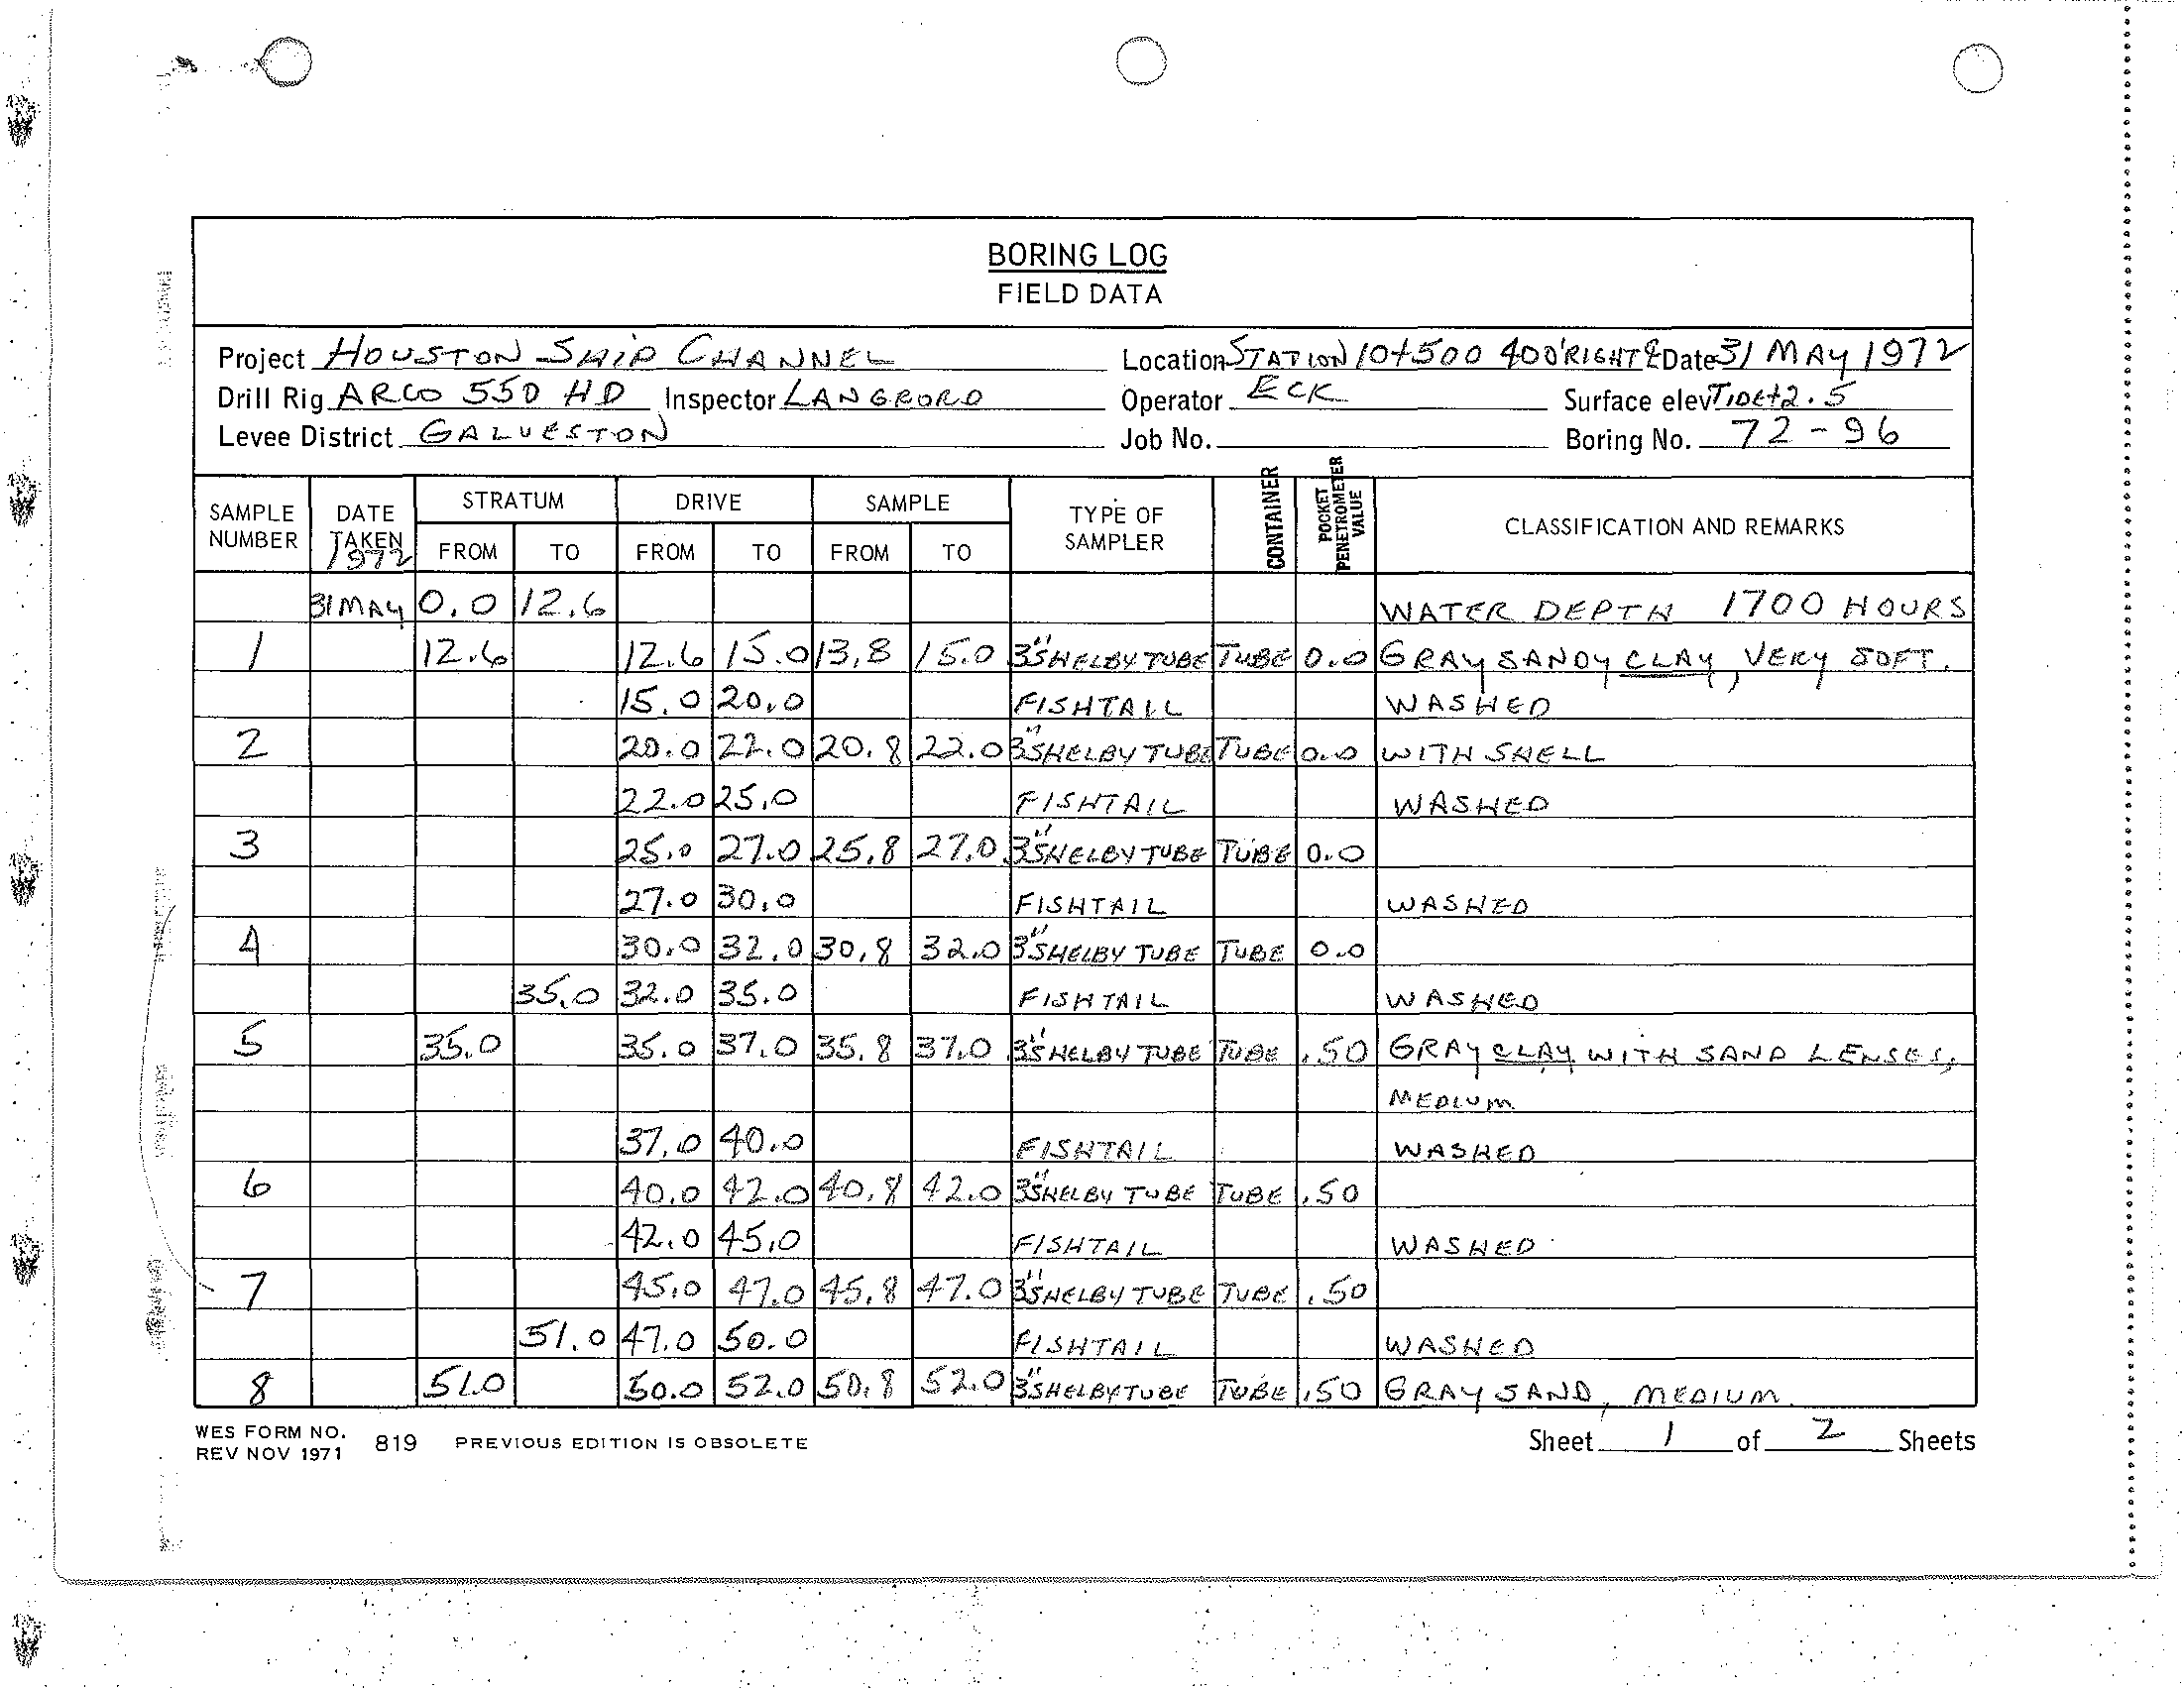 BORING LOG
FIELD DATA
Project HOUSTON SHIP CHANNEL Location STATION 10+500 400' RIGHT ℄ Date 31 MAY 1972
Drill Rig ARCO 550 HD Inspector Operator ECK Surface elev TIDE +2.5
Levee District GALVESTON Job No. Boring No. 72-96
SAMPLE NUMBER DATE TAKEN 1972 STRATUM FROM TO DRIVE FROM TO SAMPLE FROM TO TYPE OF SAMPLER CONTAINER POCKET PENETROMETER VALUE CLASSIFICATION AND REMARKS
31 MAY 0.0 12.6 WATER DEPTH 1700 HOURS
1 12.6 12.6 15.0 13.8 15.0 3" SHELBY TUBE TUBE 0.0 GRAY SANDY CLAY, VERY SOFT.
15.0 20.0 FISHTAIL WASHED
2 20.0 22.0 20.8 22.0 3" SHELBY TUBE TUBE 0.0 WITH SHELL
22.0 25.0 FISHTAIL WASHED
3 25.0 27.0 25.8 27.0 3" SHELBY TUBE TUBE 0.0
27.0 30.0 FISHTAIL WASHED
4 30.0 32.0 30.8 32.0 3" SHELBY TUBE TUBE 0.0
35.0 32.0 35.0 FISHTAIL WASHED
5 35.0 35.0 37.0 35.8 37.0 3" SHELBY TUBE TUBE .50 GRAY CLAY WITH SAND LENSES,
MEDIUM
37.0 40.0 FISHTAIL WASHED
6 40.0 42.0 40.8 42.0 3" SHELBY TUBE TUBE .50
42.0 45.0 FISHTAIL WASHED
7 45.0 47.0 45.8 47.0 3" SHELBY TUBE TUBE .50
51.0 47.0 50.0 FISHTAIL WASHED
8 51.0 50.0 52.0 50.8 52.0 3" SHELBY TUBE TUBE .50 GRAY SAND, MEDIUM.
WES FORM NO. 819 PREVIOUS EDITION IS OBSOLETE Sheet 1 of 2 Sheets
REV NOV 1971